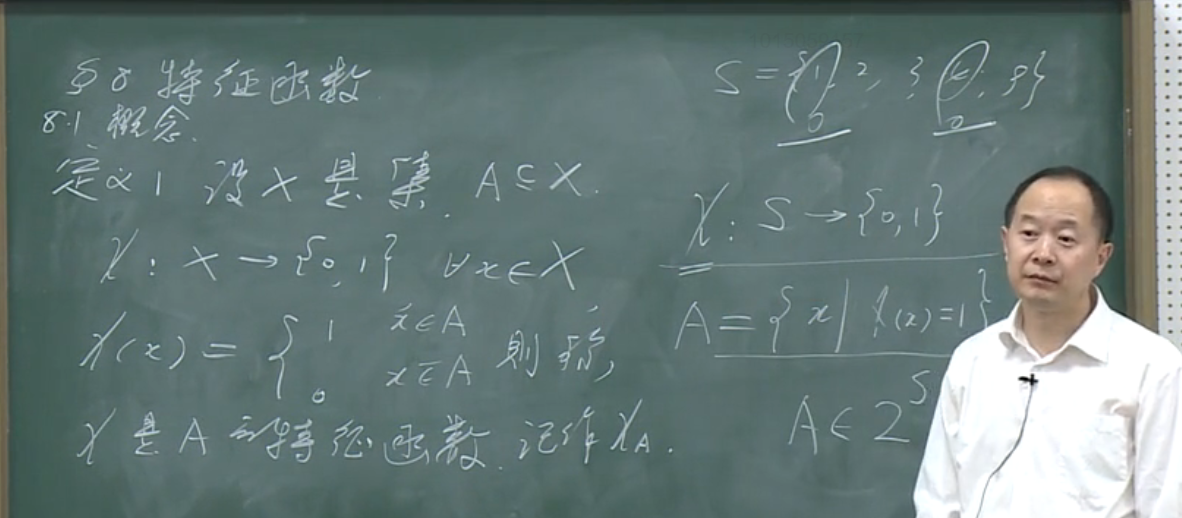 §8 特征函数
8.1 概念.
定义1 设X是集, A⊆X.
χ: X→{0,1} ∀x∈X
χ(x)={1 x∈A
0 x∈̄A 则称,
χ是A的特征函数. 记作χ_A.
S={1, 2, 3
0 0
χ: S→{0,1}
A={x|χ(x)=1}
A∈2^S